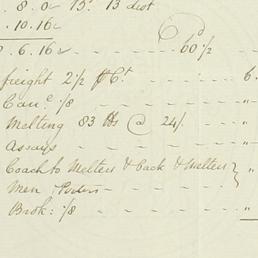 8. 0. 13. 13 dwt
10. 16
6. 16 - - - 60 1/2 - -
freight 2 1/2 p Ct. - - - 6.
Canc. 1/8 - - - "
Melting 83 lbs @ 24/. - - - "
Assays - - - "
Coach to Melters & back & Melters
Men Porters - - - "
Brok: 1/8 - - - "